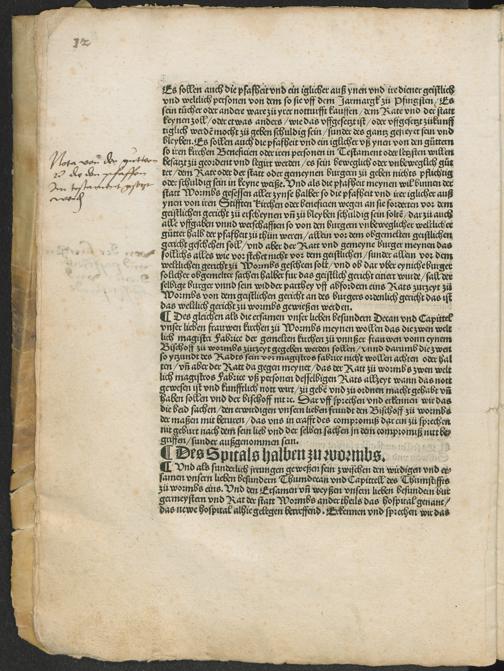 32
Nota von den guttern
so der den pfaffen
Im testament gesetzt
werden
Es sollen auch die pfafheit vnd ein iglicher auß ynen vnd ire diener geistlich
vnd weltlich personen von dem so sie vff dem Jarmargk zu Pfingsten / Es
sein tücher oder andere war zu yrer notturfft kauffen / dem Rate vnd der statt
keynen zoll / oder etwas anders / wie das vffgesetzt ist / oder vffgesetzt zukunff
tiglich werdē mocht zu geben schuldig sein / sunder des gantz gefreyet sein vnd
bleyben. Es sollen auch die pfafheit vnd ein iglicher vß ynen von den güttern
so iren kirchen Beneficien oder iren personen in Testament oder letzsten willen
besatzt zu geordent vnd legirt werden / es sein beweglich oder vnbeweglich güt
ter / dem Rate oder der statt oder gemeynen burgern zu geben nichts pflichtig
oder schuldig sein in keyne weiße. Vnd als die pfafheit meynen wil burger der
statt Wormbs gesessen aller zynse halber so die pfafheit vnd ire iglicher auß
ynen von iren Stifften kirchen oder beneficien wegen an sie fordertē vor dem
geistlichen gericht zu erscheynen vnd zu bleyben schuldig sein soltē / dar zü auch
alle vffgaben vnnd werschafften so von den burgern vnbeweglicher weltlicher
gütter halb der pfafheit zu thün weren / allein vor dem obgemelten geistlichen
gericht geschehen soll / vnd aber der Ratt vnd gemeyne burger meynen das
sollichs alles wie vorstehet nicht vor dem geistlichen / sunder allein vor dem
weltlichen gericht zu Wormbs geschēen soll / vnd ob dar vber eyniche burger
sollicher obgemelter sachen halber für das geistlich gericht citirt würde / sall der
selbige burger vnnd sein widder parthey vff abfordern eins Rats zurzeyt zu
Wormbs von dem geistlichen gericht an des burgers ordenlich gericht das ist
das weltlich gericht zu wormbs gewießen werden.
¶ Des gleichen als die ersamen vnser lieben besundern Decan vnd Capittel
vnser lieben frauwen kirchen zu Wormbs meynen wollen das die zwen welt
lich magister fabrice der gemelten kirchen zu vnnßer frauwen vonn eynem
Bischoff zu wormbs zurzeyt gegeben werden sollen / vnnd darumb die zwen
so yetzundt des Radts sein vor magistros fabrice nicht wollen achten oder hal
ten / vn̄ aber der Ratt da gegen meynet / das der Ratt zu wormbs zwen welt
lich magistros fabrice vß personen desselbigen Rats allzeyt wann das nott
geweßen ist vnd künfftlich nott wurt / zu gebē vnd zu ordnen macht gehabt vn̄
haben sollen vnd der bischoff nit ꝛc. Dar vff sprechen vnd erkennen wir das
die beid sachen / den erwirdigen vnsern lieben freundt den Bischoff zu wormbs
der maßen mit berürren / das vns in crafft des compromiß dar ein zu sprechen
nit gebürt nach dem sein lieb vnd der selben sachen in dem compromiß nitt be
griffen / sunder außgenommen sein.
¶ Des Spitals halben zu wormbs.
¶ Vnd als sunderlich irrungen geweßen sein zwischen den wirdigen vnd er-
samen vnsern lieben besundern Thumdecan vnd Capittell des Thumstiffts
zu wormbs eins. Vnd den Ersamen vn̄ weyßen vnsern lieben besundern bur
germeystern vnd Rat der statt Wormbs ander theils das hospital genant /
das neuwe hospital alhie gelegen betreffend. Erkennen vnd sprechen wir das